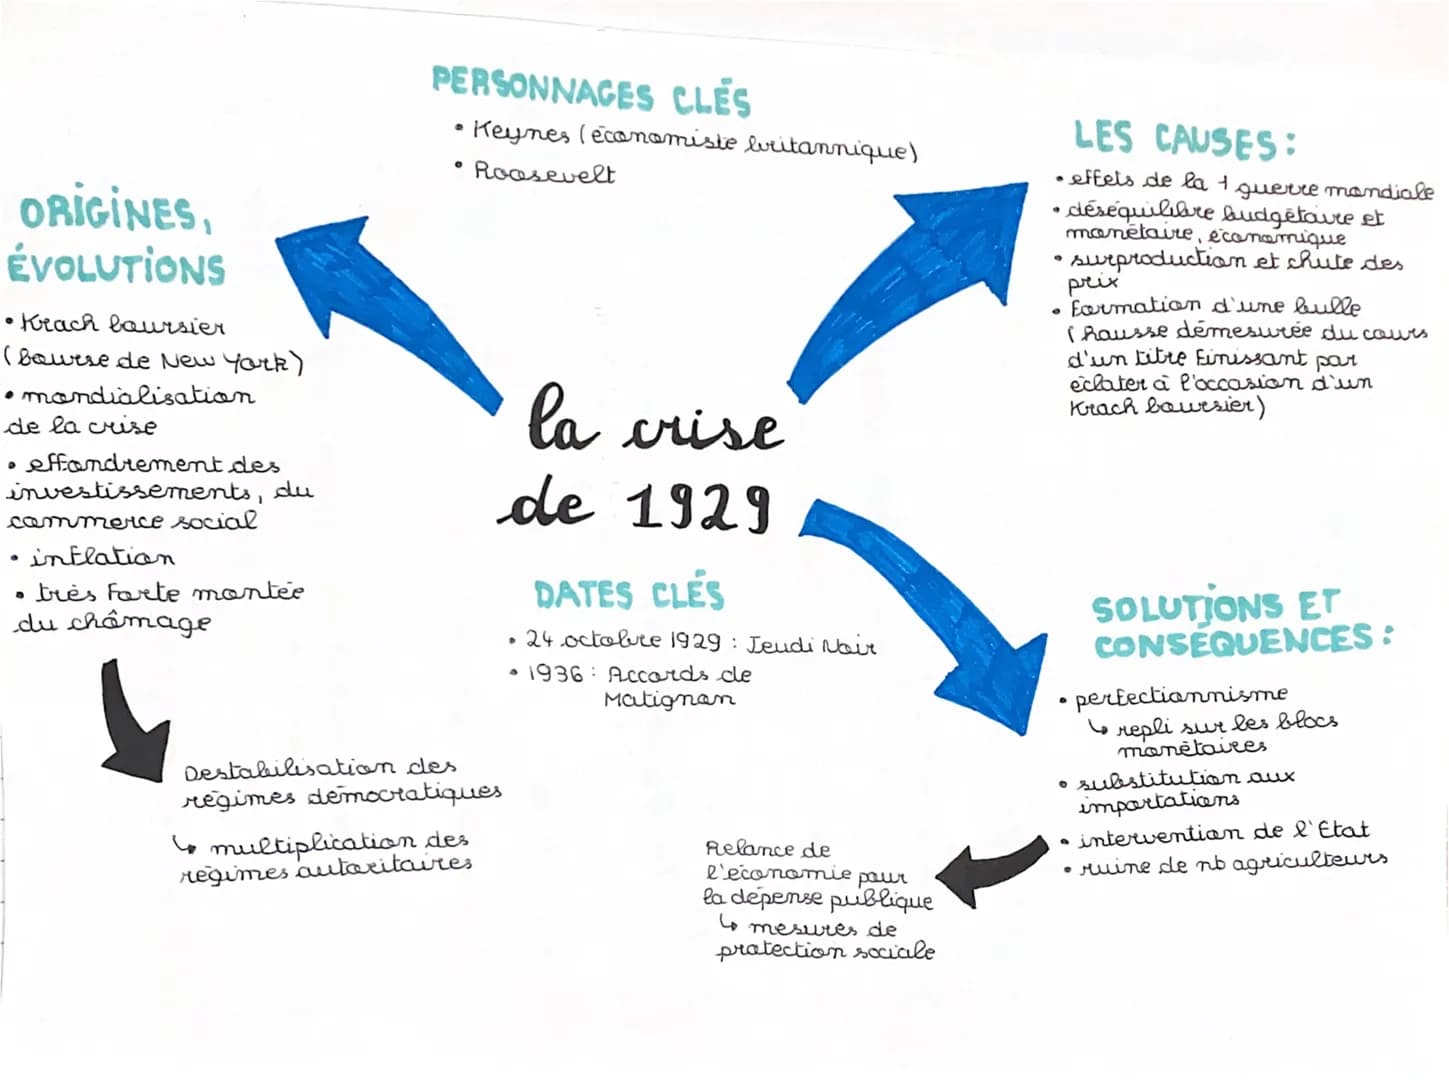 PERSONNAGES CLÉS
• Keynes (économiste britannique)
• Roosevelt
LES CAUSES :
• effets de la 1 guerre mondiale
• déséquilibre budgétaire et
monétaire, économique
• surproduction et chute des
prix
• Formation d'une bulle
(hausse démesurée du cours
d'un titre finissant par
éclater à l'occasion d'un
Krach boursier)
ORIGINES,
ÉVOLUTIONS
• Krach boursier
(bourse de New York)
• mondialisation
de la crise
• effondrement des
investissements, du
commerce social
• inflation
• très forte montée
du chômage
la crise
de 1929
DATES CLÉS
• 24 octobre 1929 : Jeudi Noir
• 1936 : Accords de
Matignon
SOLUTIONS ET
CONSÉQUENCES :
• perfectionnisme
↳ repli sur les blocs
monétaires
• substitution aux
importations
• intervention de l'Etat
• ruine de nb agriculteurs
Destabilisation des
régimes démocratiques
↳ multiplication des
régimes autoritaires
Relance de
l'économie pour
la dépense publique
↳ mesures de
protection sociale